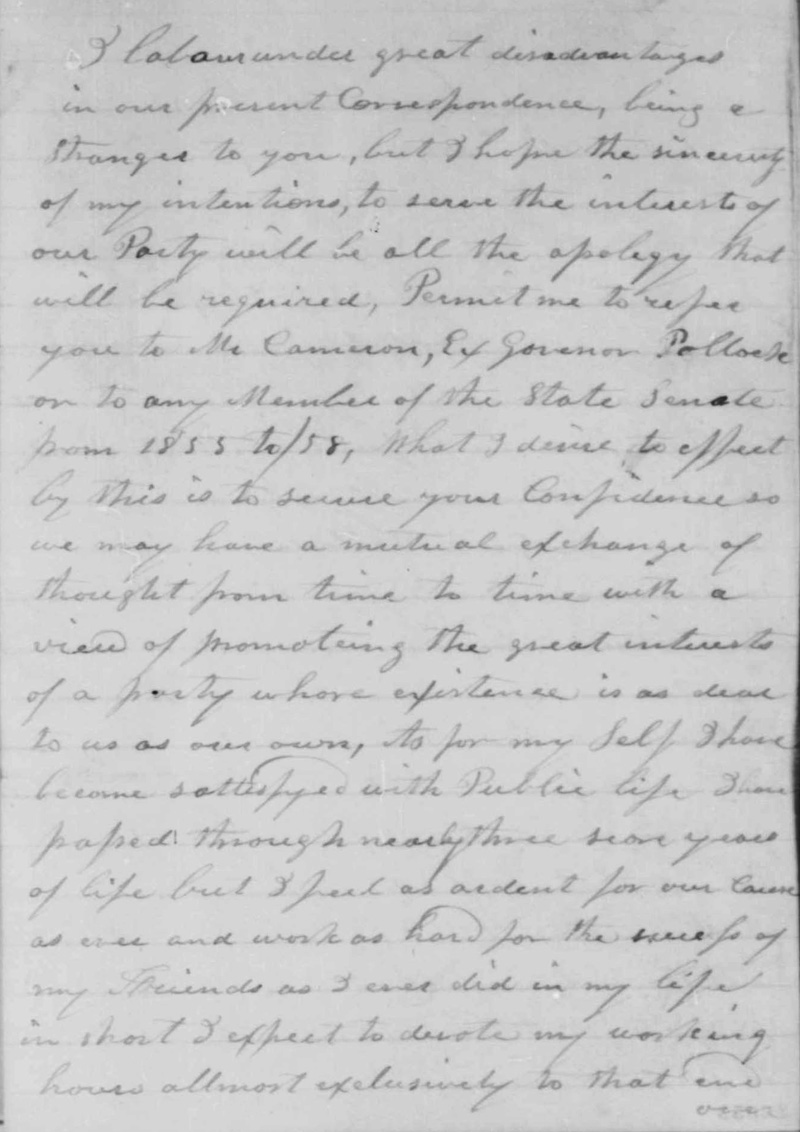 I labour under great disadvantages
in our present Correspondence, being a
stranger to you, but I hope the sincerity
of my intentions, to serve the interests of
our Party will be all the apology that
will be required, Permit me to refer
you to Mr Cameron, Ex Govenor Pollock
or to any Member of the State Senate
from 1855 to/58, What I desire to effect
by this is to secure your Confidence so
we may have a mutual exchange of
thought from time to time with a
view of promoteing the great interests
of a party whose existence is as dear
to us as our own, As for my Self I have
become sattisfyed with Public life I have
passed through nearly three score years
of life but I feel as ardent for our Cause
as ever and work as hard for the success of
my Friends as I ever did in my life
in short I expect to devote my working
hours allmost exclusively to that end
over